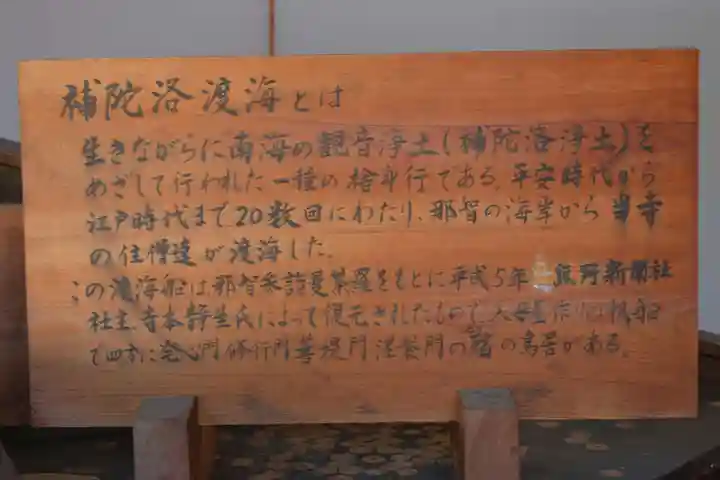 補陀洛渡海とは
生きながらに南海の観音浄土(補陀洛浄土)を
めざして行われた一種の捨身行である。平安時代から
江戸時代まで20数回にわたり、那智の海岸から当寺
の住僧達が渡海した。
この渡海船は那智参詣曼荼羅をもとに平成5年 熊野新聞社
社主、寺本静生氏によって復元されたもので、 帆船
で四方に発心門修行門菩提門涅槃門の 鳥居がある。